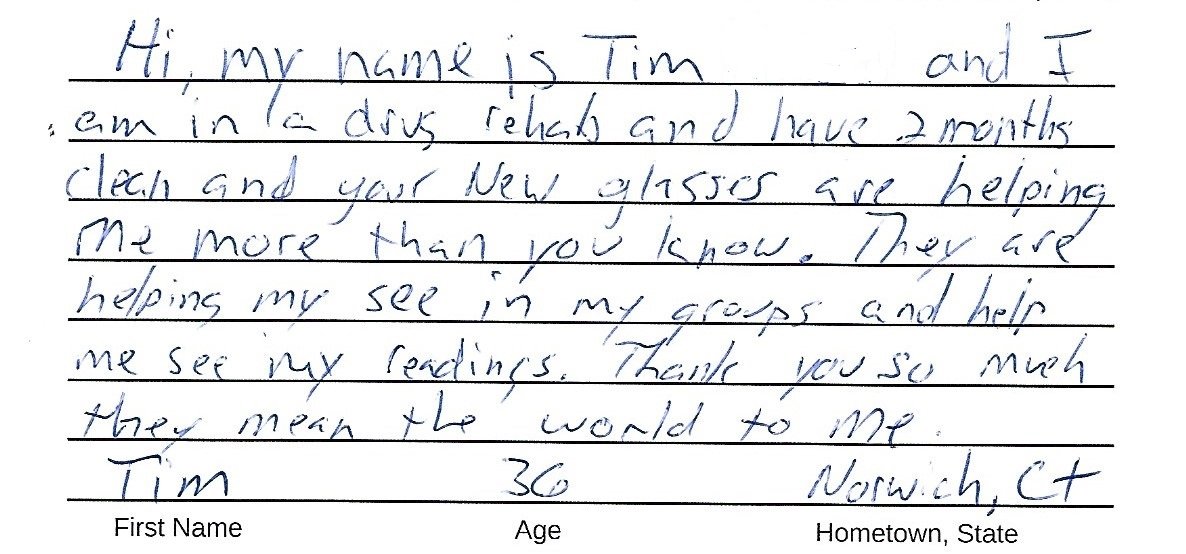 Hi, my name is Tim and I
am in a drug rehab and have 2 months
clean and your New glasses are helping
me more than you know. They are
helping my see in my groups and help
me see my readings. Thank you so much
they mean the world to me.
Tim 36 Norwich, Ct
First Name Age Hometown, State